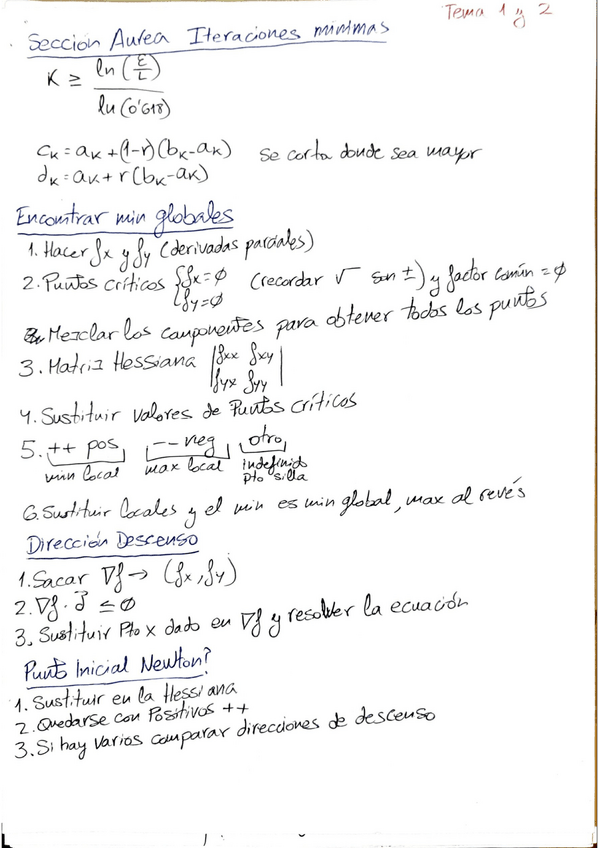 Tema 1 y 2
Sección Aurea Iteraciones mínimas
K ≥ ln(ε/L) / ln(0'618)
cₖ = aₖ + (1-r)(bₖ-aₖ) se corta donde sea mayor
dₖ = aₖ + r(bₖ-aₖ)
Encontrar min globales
1. Hacer fx y fy (derivadas parciales)
2. Puntos críticos {fx=∅ (recordar √ son ±) y factor común = ∅
{fy=∅
Mezclar los componentes para obtener todos los puntos
3. Matriz Hessiana |fxx fxy|
|fyx fyy|
4. Sustituir valores de Puntos críticos
5. ++ pos, -- neg, otro,
min local max local indefinido
pto silla
6. Sustituir locales y el min es min global, max al revés
Dirección Descenso
1. Sacar ∇f → (fx, fy)
2. ∇f · d ≤ ∅
3. Sustituir Pto x dado en ∇f y resolver la ecuación
Punto Inicial Newton?
1. Sustituir en la Hessiana
2. Quedarse con Positivos ++
3. Si hay varios comparar direcciones de descenso